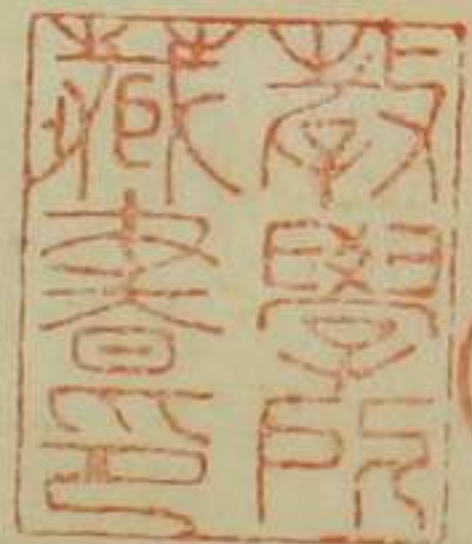 敎學所
藏書印